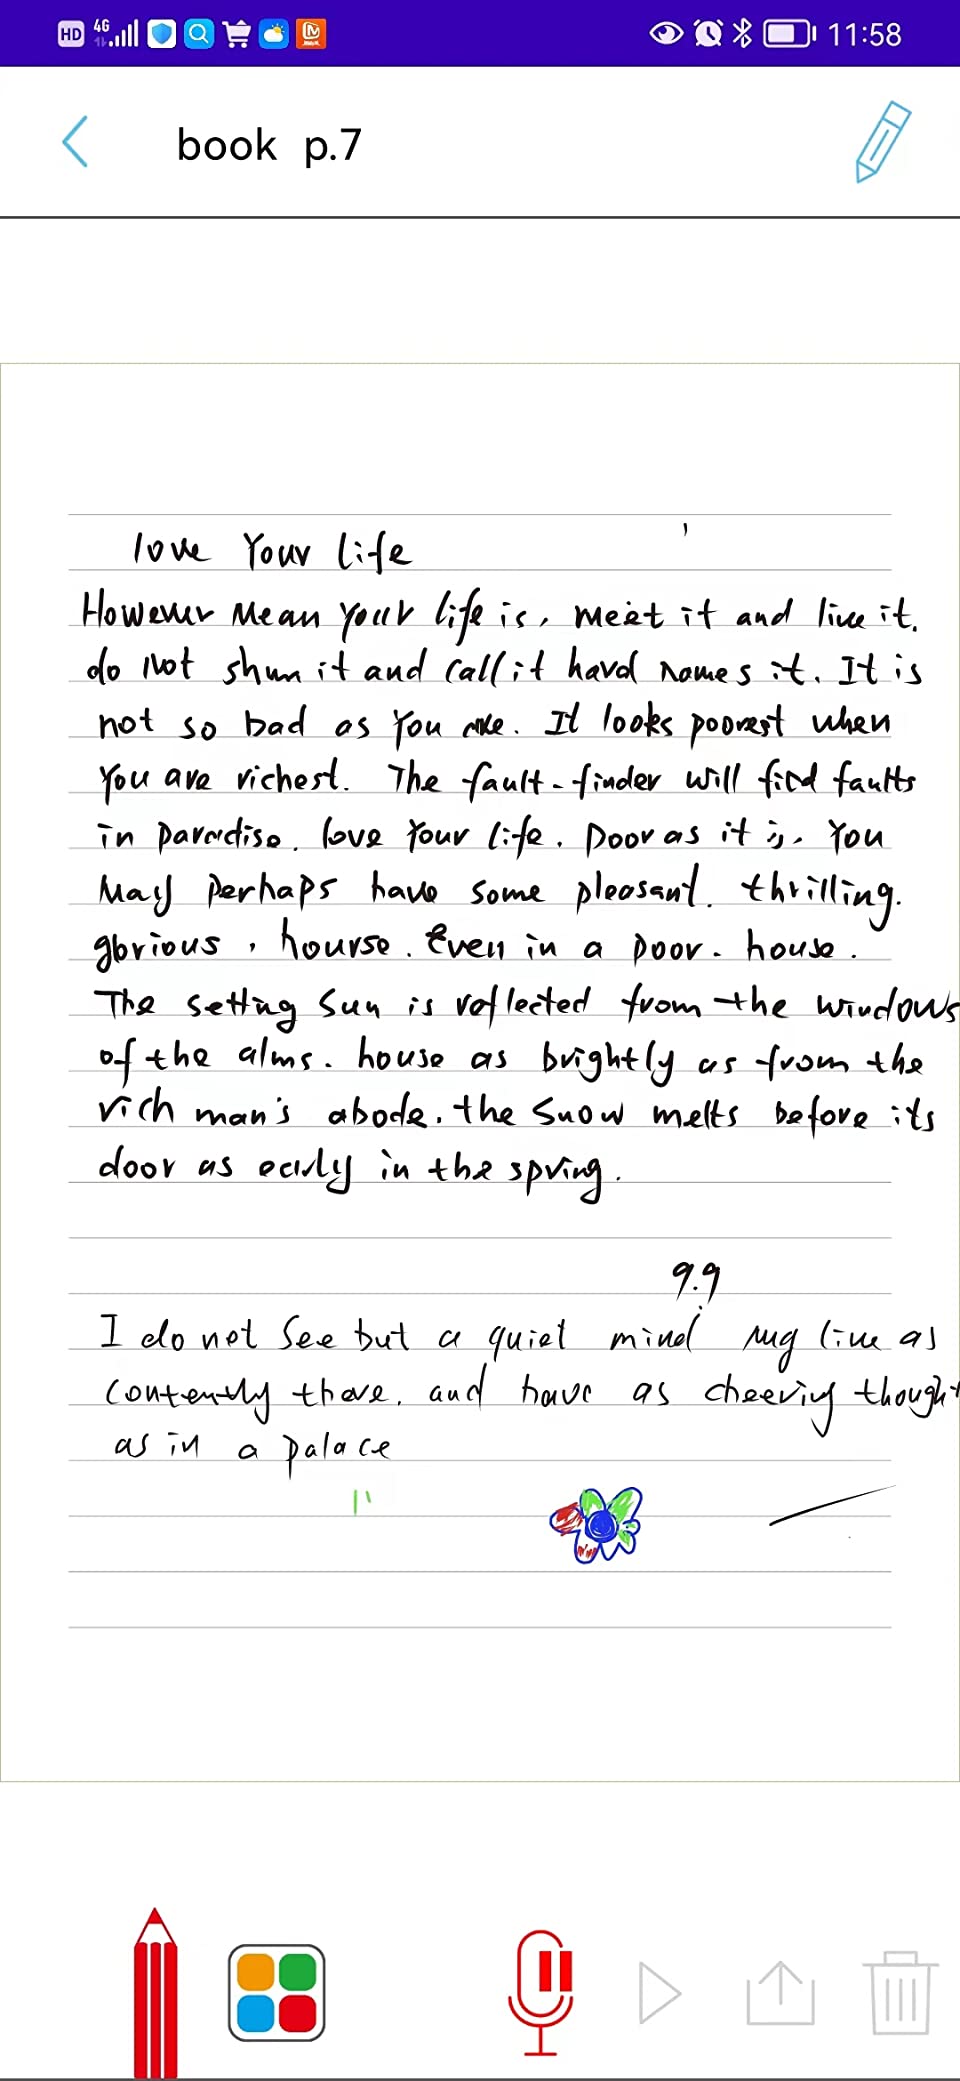 HD 4G 11:58
book p.7
love Your life
However Mean Your life is, meet it and live it.
do Not shun it and call it hard names it. It is
not so bad as You are. It looks poorest when
You are richest. The fault-finder will find faults
in paradise. love Your life. Poor as it is. You
May Perhaps have some pleasant. thrilling.
glorious, hourse. Even in a poor. house.
The setting Sun is reflected from the windows
of the alms. house as brightly as from the
rich man's abode. the Snow melts before its
door as early in the spring.
9.9
I do not See but a quiet mind live as
contently there. and have as cheering thought
as in a palace